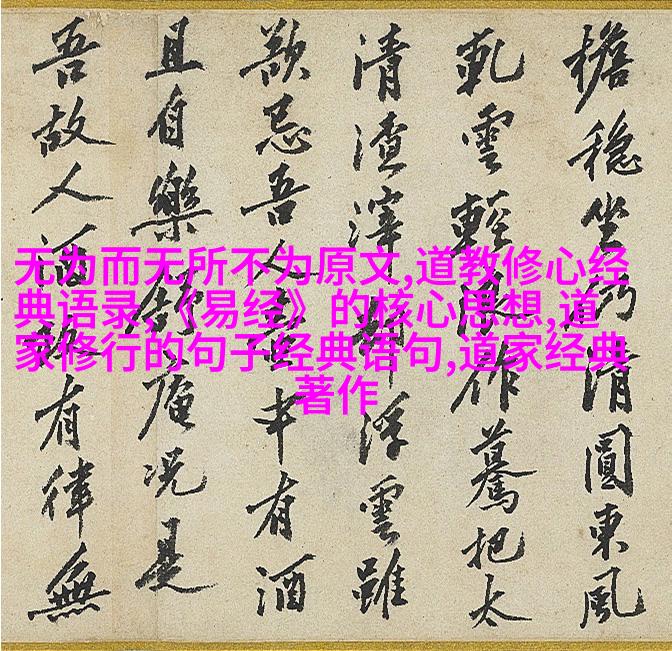 无为而无所不为原文,道教修心经
典语录,《易经》的核心思想,道
家修行的句子经典语句,道家经典
著作
檐穩坐清圓東風
雲輕作驀把太
清渣滓浮雲雖
忌吾人中有酒
且自樂庵況是
吾故人酒有律無